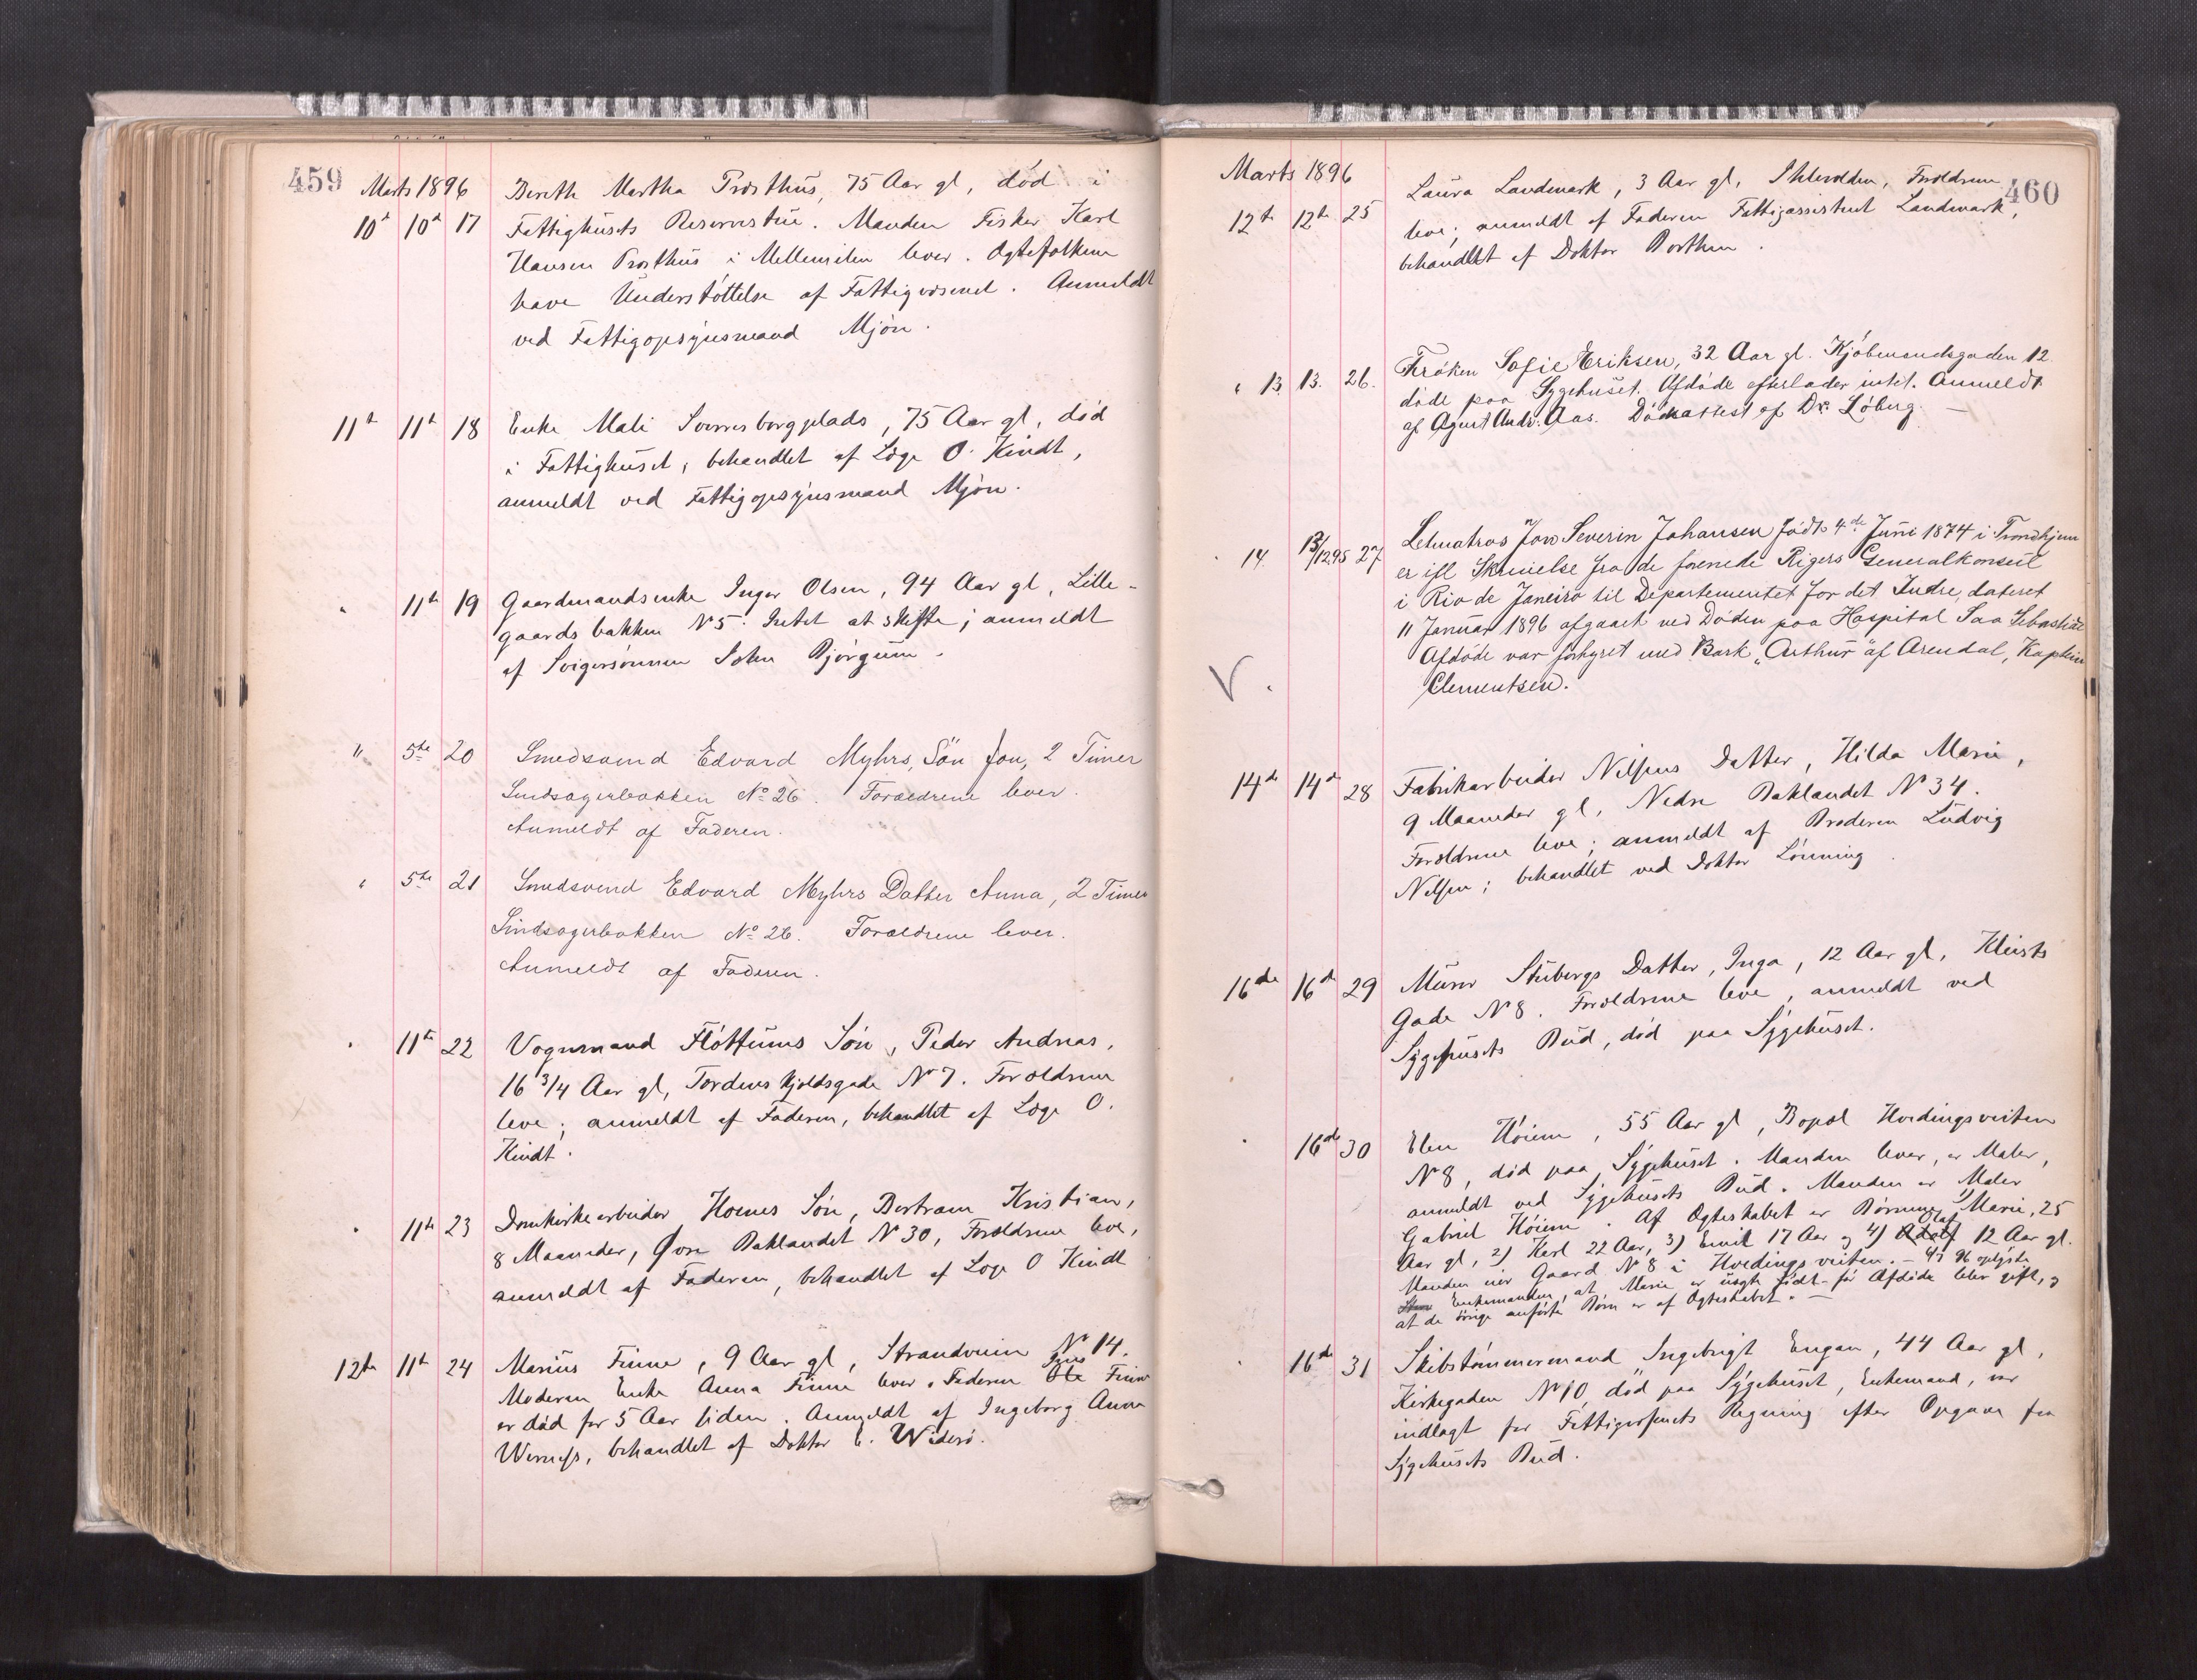 459
Marts 1896
Bereth Martha Prosthus, 75 Aar gl, död i
10de 10de 17 Fattighusets Reservestue. Manden Fisker Karl
Hansen Prosthus i Mellemilen lever. Ægtefolkene
have Understöttelse af Fattigvæsenet. Anmeldt
ved Fattigopsynsmand Mjön.
11te 11te 18 Enke Mali Sverresborgplads, 75 Aar gl, död
i Fattighuset, behandlet af Læge O. Kindt,
anmeldt ved Fattigopsynsmand Mjön.
" 11te 19 Gaardmandsenke Inger Olsen, 94 Aar gl, Lille-
gaardsbakken No 5. Intet at skifte; anmeldt
af Svigersönnen John Bjørgum.
" 5te 20 Smedsvend Edvard Myhrs, Sön Jon, 2 Timer
Sindsagerbakken No 26. Forældrene lever.
Anmeldt af Faderen.
" 5te 21 Smedsvend Edvard Myhrs Datter Anna, 2 Timer
Sindsagerbakken No 26. Forældrene lever.
Anmeldt af Faderen.
" 11te 22 Vognmand Flöttums Sön, Peder Andreas,
16 3/4 Aar gl, Tordenskjoldsgade No 7. Forældrene
leve; anmeldt af Faderen, behandlet af Læge O.
Kindt.
" 11te 23 Domkirkearbeider Hoems Sön, Bertram Kristian,
8 Maaneder, Øvre Baklandet No 30, Forældrene leve,
anmeldt af Faderen, behandlet af Læge O Kindt
12te 11te 24 Marius Finne, 9 Aar gl, Strandveien No 14.
Moderen Enke Anna Finne lever. Faderen Ole Jens Finne
er död for 5 Aar siden. Anmeldt af Ingeborg Anna
Werness, behandlet af Doktor C. Widerö.
460
Marts 1896
Laura Landmark, 3 Aar gl, Ihlevolden, Forældrene
12te 12te 25 leve; anmeldt af Faderen Fattigassistent Landmark,
behandlet af Doktor Borthen.
" 13. 13. 26. Fröken Sofie Eriksen, 32 Aar gl. Kjöbmandsgaden 12
döde paa Sygehuset. Afdöde efterlader intet. Anmeldt
af Agent Andr. Aas. Dödsattest af Dr. Löberg. —
" 14. 13/12 95 27 Letmatros Jon Severin Johansen födt 4de Juni 1874 i Trondhjem
er ifl Skrivelse fra de forenede Rigers Generalkonsul
i Rio de Janeiro til Departementet for det Indre, dateret
11 Januar 1896 afgaaet ved Döden paa Hospital Sao Sebastiao
Afdöde var forhyret med Bark "Arthur" af Arendal, Kaptein
V. Clementsen.
14de 14de 28 Fabrikarbeider Nilsens Datter, Hilda Marie,
9 Maaneder gl, Nedre Baklandet No 34.
Forældrene leve; anmeldt af Broderen Ludvig
Nilsen; behandlet ved Doktor Lönning.
16de 16de 29 Murer Stubergs Datter, Inga, 12 Aar gl, Kleists
Gade No 8. Forældrene leve, anmeldt ved
Sygehusets Bud, död paa Sygehuset.
" 16de 30 Elen Höiem, 55 Aar gl, Bopæl Hvedingsveiten
No 8, död paa Sygehuset. Manden lever, er Maler,
anmeldt ved Sygehusets Bud. Manden er Maler
Gabriel Höiem. Af Ægteskabet er Børnene 1) Marie, 25
Aar gl, 2) Karl 22 Aar, 3) Emil 17 Aar og 4) Adolf Olaf 12 Aar gl.
Manden eier Gaard No 8 i Hvedingsveiten. — 4/7 96 oplyste
Enkemanden, at Marie er uægte födt för Afdöde blev gift, og
at de övrige anförte Börn er af Ægteskabet. —
" 16de 31 Skibstömmermand Ingebrigt Engan, 44 Aar gl,
Kirkegaden No 10, död paa Sygehuset, Enkemand, var
indlagt for Fattigvæsenets Regning efter Opgave fra
Sygehusets Bud.